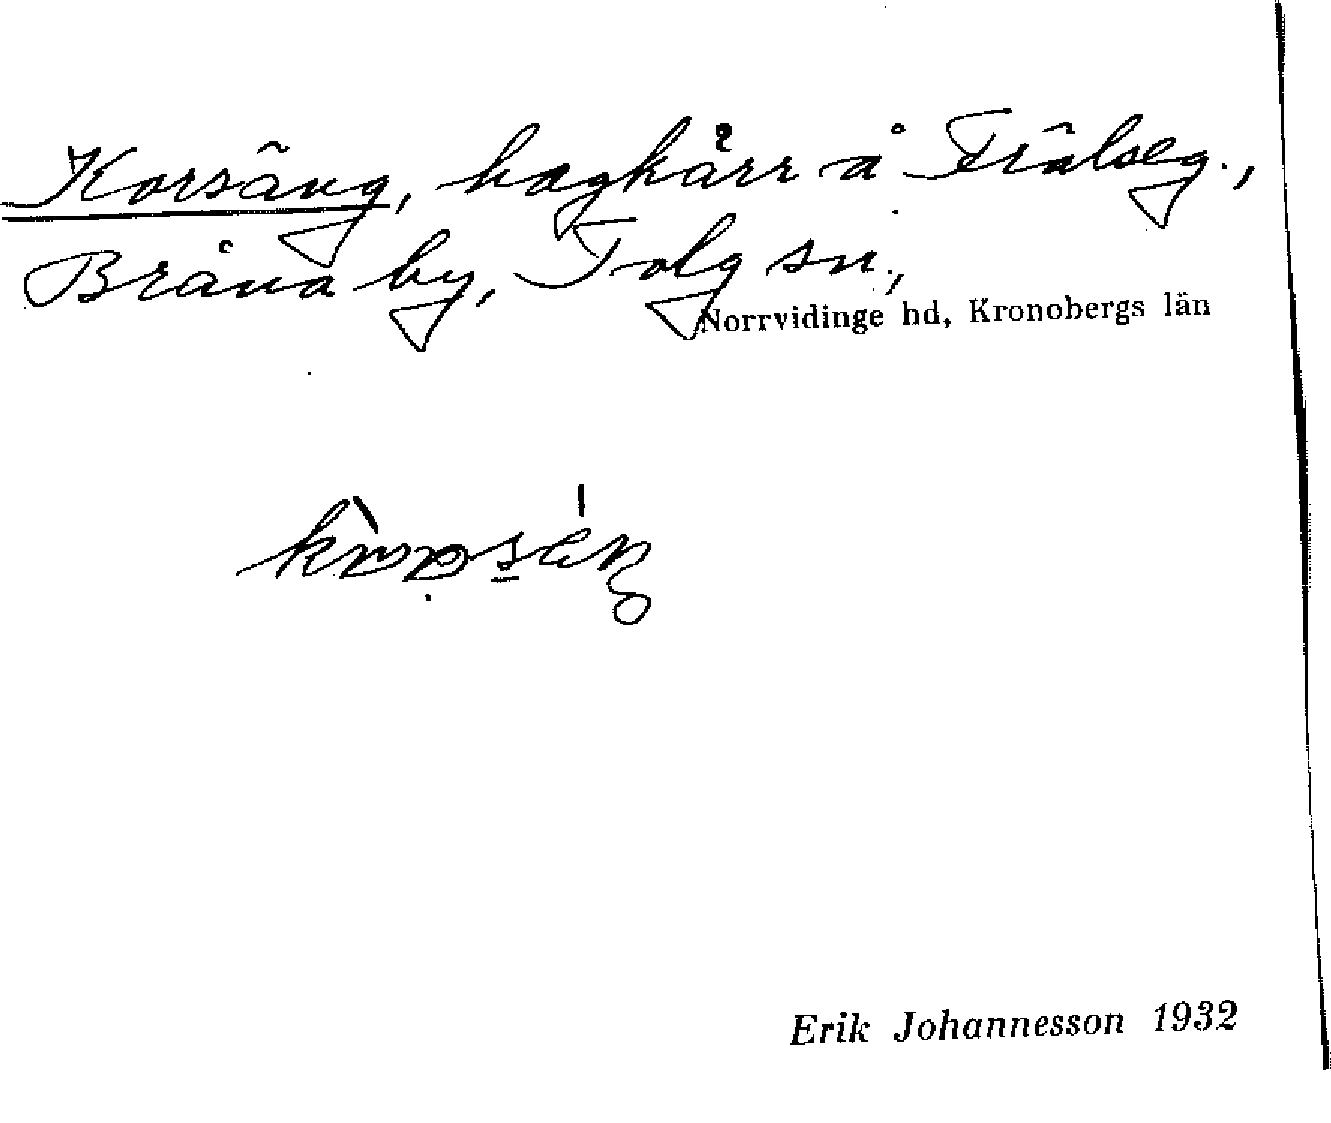 Korsäng, hagkärr å Frälseg.,
Bråna by, Tolg sn.,
Norrvidinge hd, Kronobergs län
Erik Johannesson 1932